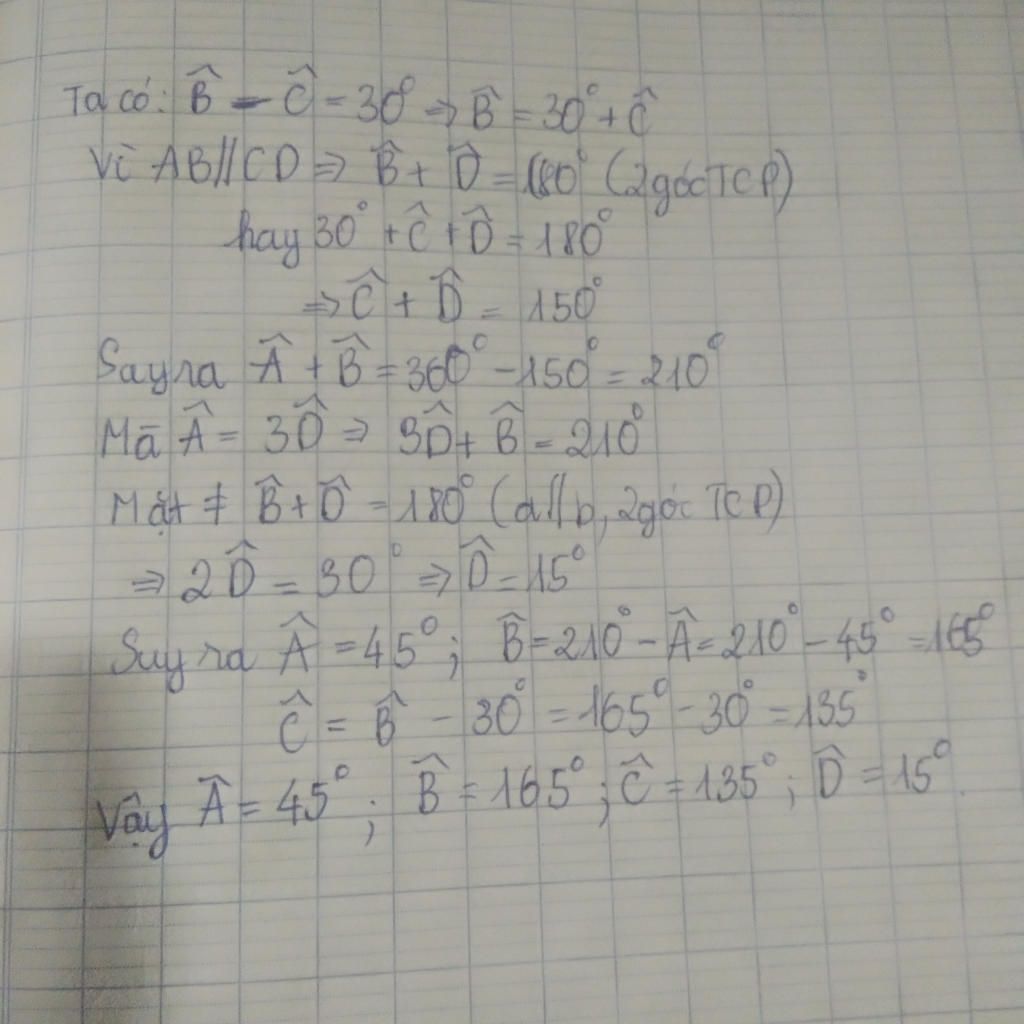 Ta có: B̂ - Ĉ = 30° ⇒ B̂ = 30° + Ĉ
Vì AB//CD ⇒ B̂ + D̂ = 180° (2góc TCP)
hay 30° + Ĉ + D̂ = 180°
⇒ Ĉ + D̂ = 150°
Suy ra Â + B̂ = 360° - 150° = 210°
Mà Â = 3D̂ ⇒ 3D̂ + B̂ = 210°
Mặt ≠ B̂ + D̂ = 180° (a//b, 2góc TCP)
⇒ 2D̂ = 30° ⇒ D̂ = 15°
Suy ra Â = 45°; B̂ = 210° - Â = 210° - 45° = 165°
Ĉ = B̂ - 30° = 165° - 30° = 135°
Vậy Â = 45°; B̂ = 165°; Ĉ = 135°; D̂ = 15°.